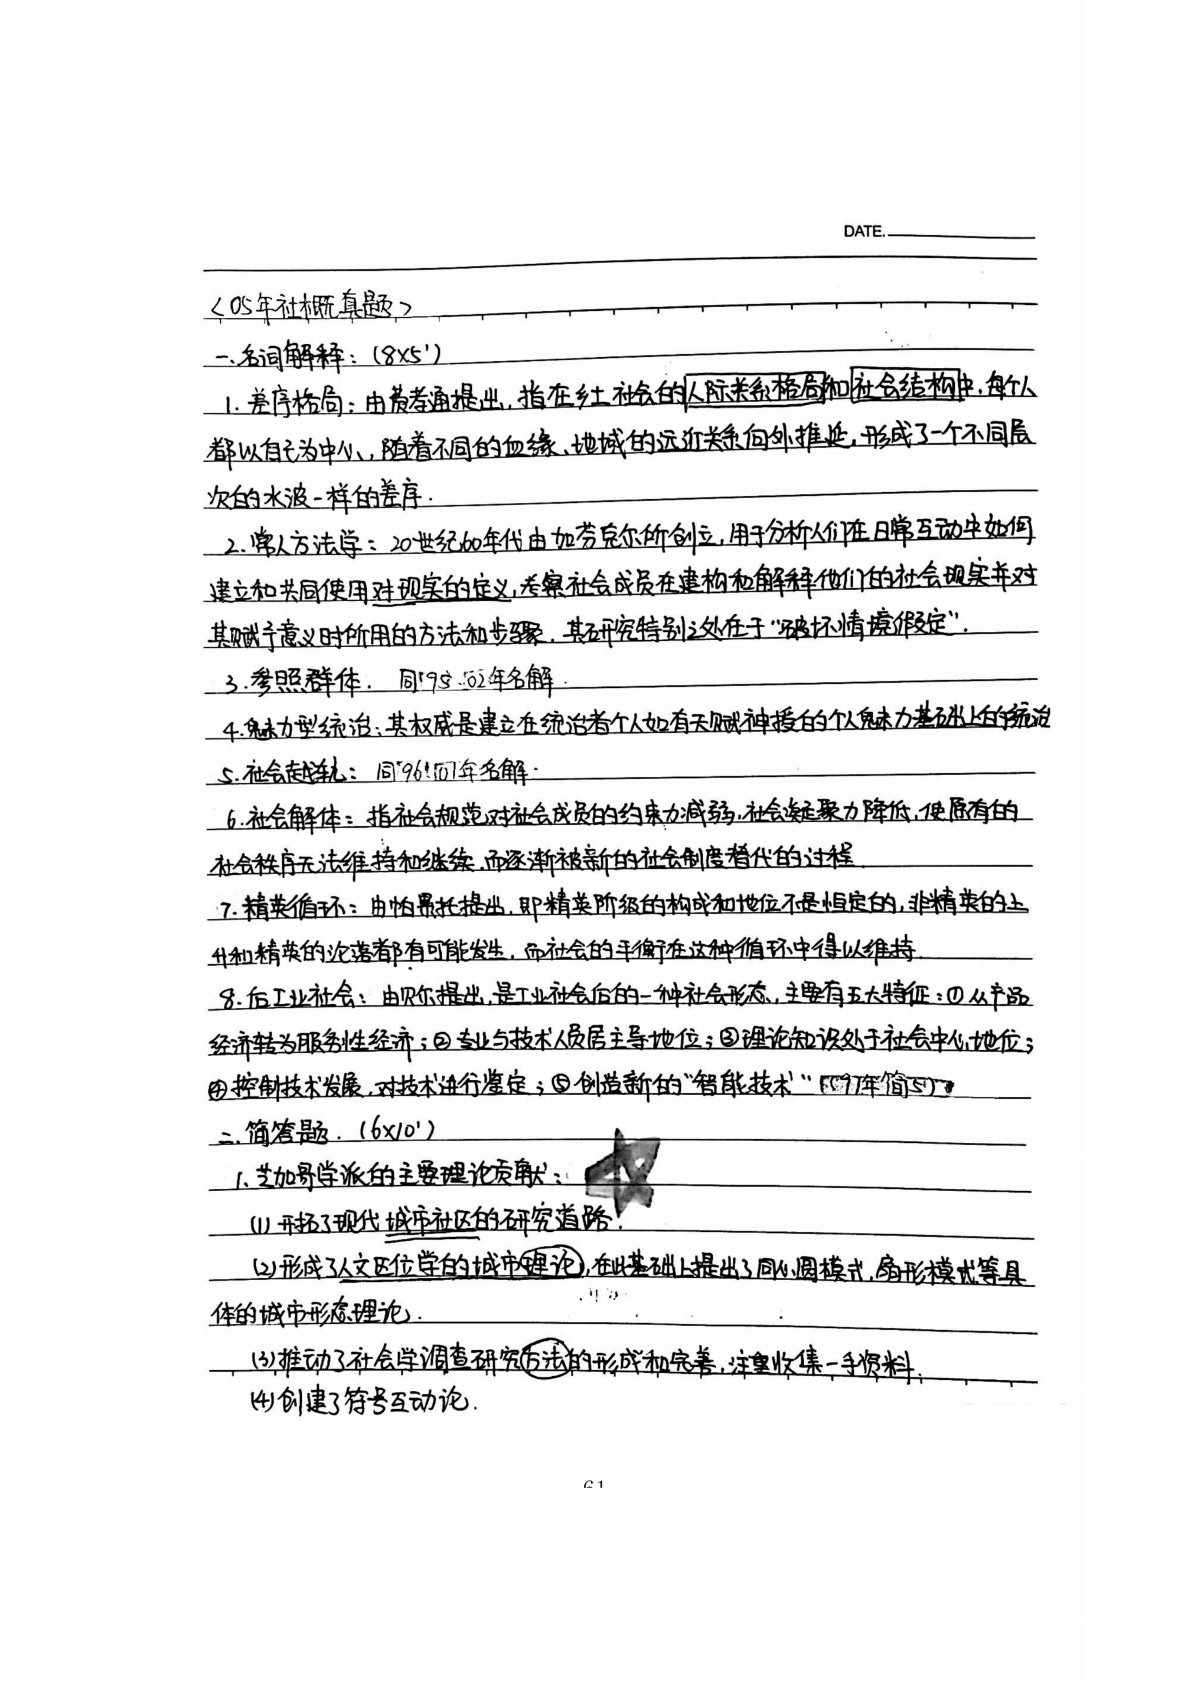 DATE.
<05年社概真题>
一.名词解释：(8×5')
1.差序格局：由费孝通提出，指在乡土社会的人际关系格局和社会结构中，每个人
都以自己为中心，随着不同的血缘、地域的远近关系向外推延，形成了一个不同层
次的水波一样的差序.
2.常人方法学：20世纪60年代由加芬克尔所创立，用于分析人们在日常互动中如何
建立和共同使用对现实的定义，考察社会成员在建构和解释他们的社会现实并对
其赋予意义时所用的方法和步骤，其研究特别之处在于“破坏情境假定”.
3.参照群体. 同'95、02年名解.
4.魅力型统治：其权威是建立在统治者个人如有天赋神授的个人魅力基础上的统治
5.社会越轨：同'96 年名解.
6.社会解体：指社会规范对社会成员的约束力减弱，社会凝聚力降低，使原有的
社会秩序无法维持和继续，而逐渐被新的社会制度替代的过程.
7.精英循环：由帕累托提出，即精英阶级的构成和地位不是恒定的，非精英的上
升和精英的沦落都有可能发生，而社会的平衡在这种循环中得以维持.
8.后工业社会：由贝尔提出，是工业社会后的一种社会形态，主要有五大特征：①从产品
经济转为服务性经济；②专业与技术人员居主导地位；③理论知识处于社会中心地位；
④控制技术发展，对技术进行鉴定；⑤创造新的“智能技术”
二.简答题.(6×10')
1.芝加哥学派的主要理论贡献：
(1)开拓了现代城市社区的研究道路.
(2)形成了人文区位学的城市理论，在此基础上提出了同心圆模式，扇形模式等具
体的城市形态理论.
(3)推动了社会学调查研究方法的形成和完善，注重收集一手资料.
(4)创建了符号互动论.
61